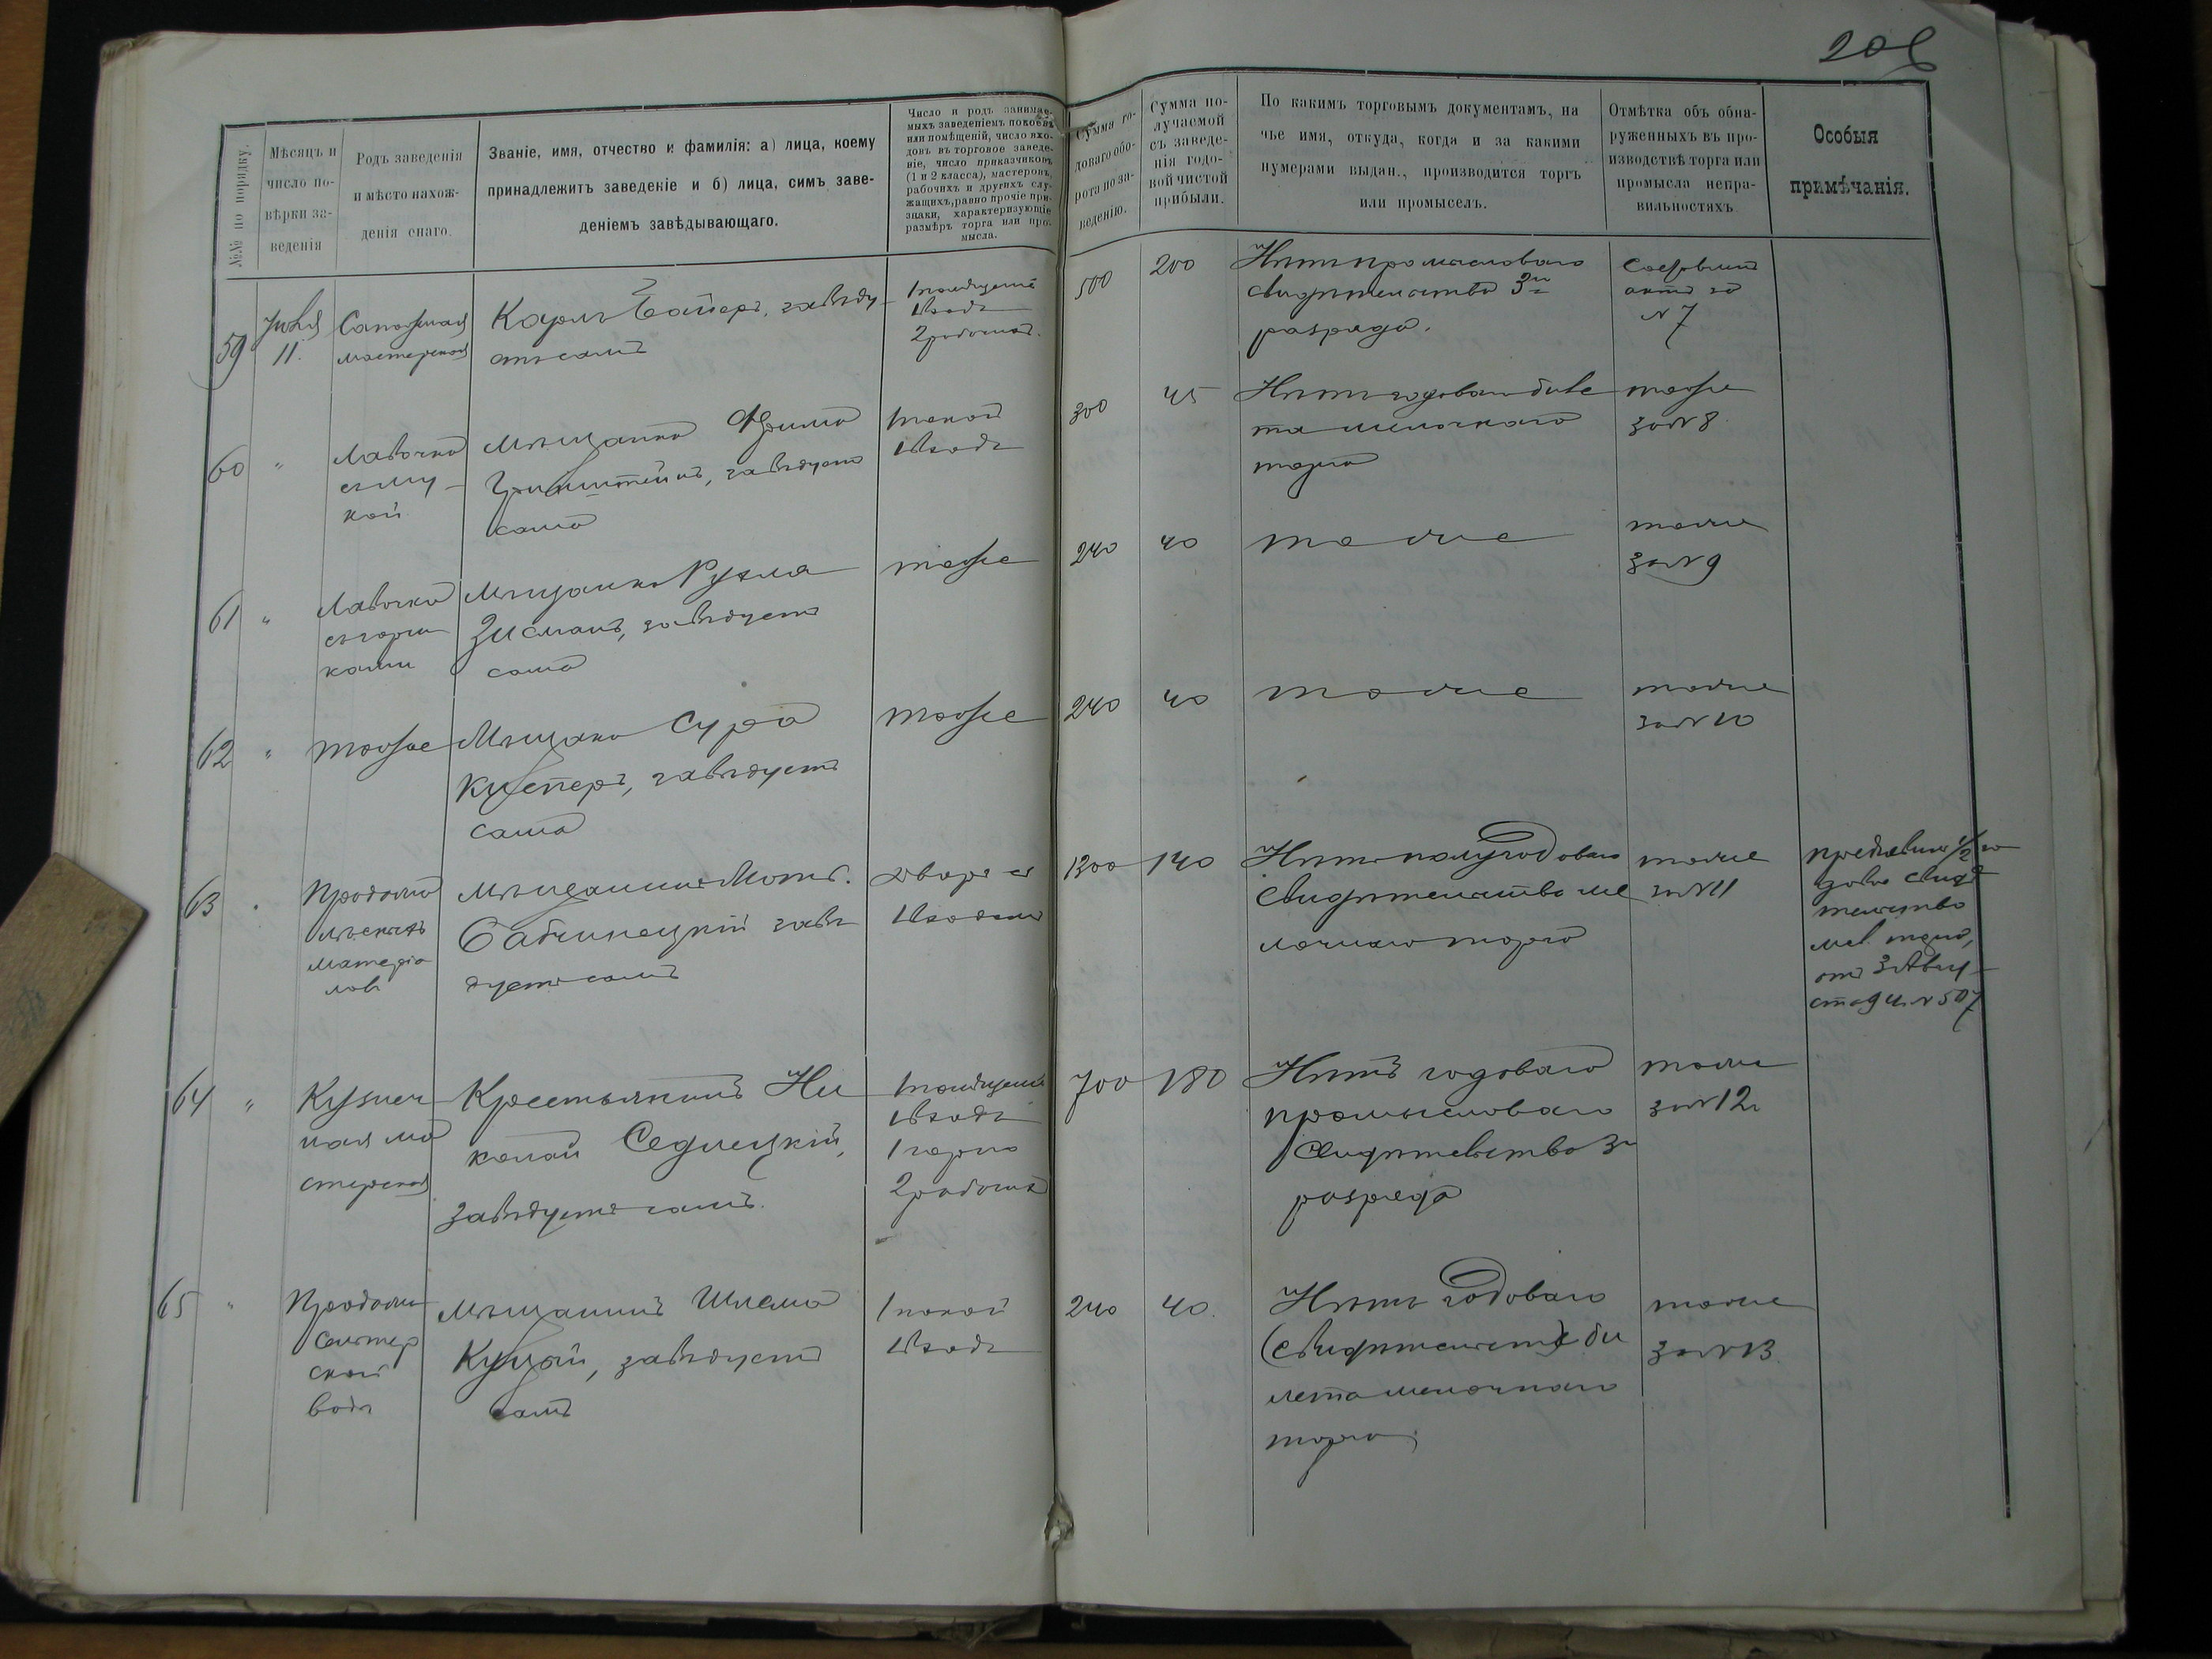 206
№№ по порядку.
Мѣсяцъ и
число по-
вѣрки за-
веденія
Родъ заведенія
и мѣсто нахож-
денія онаго.
Званіе, имя, отчество и фамилія: а) лица, коему
принадлежитъ заведеніе и б) лица, симъ заве-
деніемъ завѣдывающаго.
Число и родъ занимае-
мыхъ заведеніемъ покоевъ
или помѣщеній, число вхо-
довъ въ торговое заведе-
ніе, число приказчиковъ
(1 и 2 класса), мастеровъ,
рабочихъ и другихъ слу-
жащихъ, равно прочіе при-
знаки, характеризующіе
размѣръ торга или про-
мысла.
Сумма го-
доваго обо-
рота по за-
веденію.
Сумма по-
лучаемой
съ заведе-
нія годо-
вой чистой
прибыли.
По какимъ торговымъ документамъ, на
чье имя, откуда, когда и за какими
нумерами выдан., производится торгъ
или промыселъ.
Отмѣтка объ обна-
руженныхъ въ про-
изводствѣ торга или
промысла непра-
вильностяхъ.
Особыя
примѣчанія.
59
Іюля
11.
Сапожная
мастерская
Карлъ Байеръ, завѣду-
етъ самъ
1 помѣщеніе
1 входъ
2 рабочихъ.
500
200
Нѣтъ промысловаго
свидѣтельства 3го
разряда.
Составленъ
актъ за
№ 7
60
"
Лавочка
съ му-
кой
мѣщанка Фрима
завѣдуетъ
сама
1 покой
1 входъ
300
45
Нѣтъ годоваго биле
та мелочнаго
торга
тоже
за № 8
61
"
Лавочка
съ горш
ками
Мѣщанка Рухля
Зисманъ, завѣдуетъ
сама
тоже
240
40
тоже
тоже
за № 9
62
"
тоже
Мѣщанка Сура
Куперъ, завѣдуетъ
сама
тоже
240
40
тоже
тоже
за № 10
63
"
Продажа
лѣсныхъ
матеріа
ловъ
мѣщанинъ
завѣ
дуетъ самъ
дворъ съ
1 входомъ
1300
140
Нѣтъ полугодоваго
свидѣтельства ме
лочнаго торга
тоже
за № 11
представилъ 1/2 го
довое свидѣ
тельство
мел. торга,
отъ 3 Авгу-
ста № 507
64
"
Кузнеч
ная ма
стерская
Крестьянинъ Ни
колай Седлецкій,
завѣдуетъ самъ.
1 помѣщеніе
1 входъ
1 горно
2 рабочихъ
700
180
Нѣтъ годоваго
промысловаго
свидѣтельства 3го
разряда
тоже
за № 12
65
"
Продажа
сельтер
ской
воды
мѣщанинъ Шлема
завѣдуетъ
самъ
1 покой
1 входъ
240
40.
Нѣтъ годоваго
би
лета мелочнаго
торга.
тоже
за № 13.